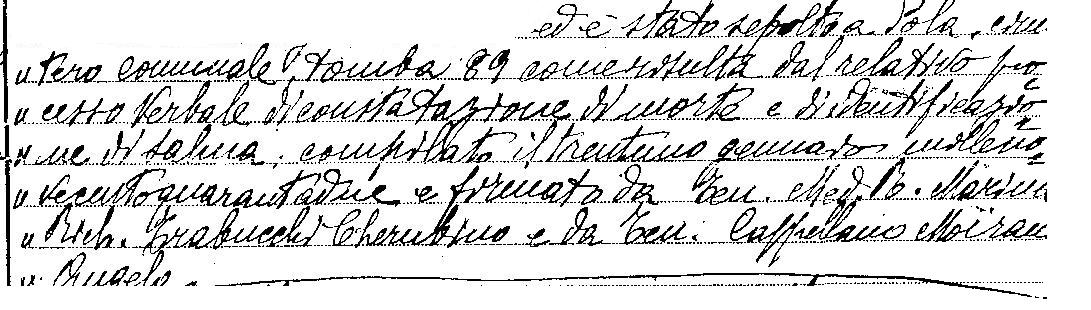 ed è stato sepolto a Pola, cimi
" tero comunale, tomba 89 come risulta dal relativo pro
" cesso verbale di constatazione di morte e di identificazio
" ne di salma, compilato il trentuno gennaio milleno=
" vecentoquarantadue e firmato da Ten. Med. R. Marina
" Rich. Trabucchi Cherubino e da Ten. Cappellano Moiran
" Angelo